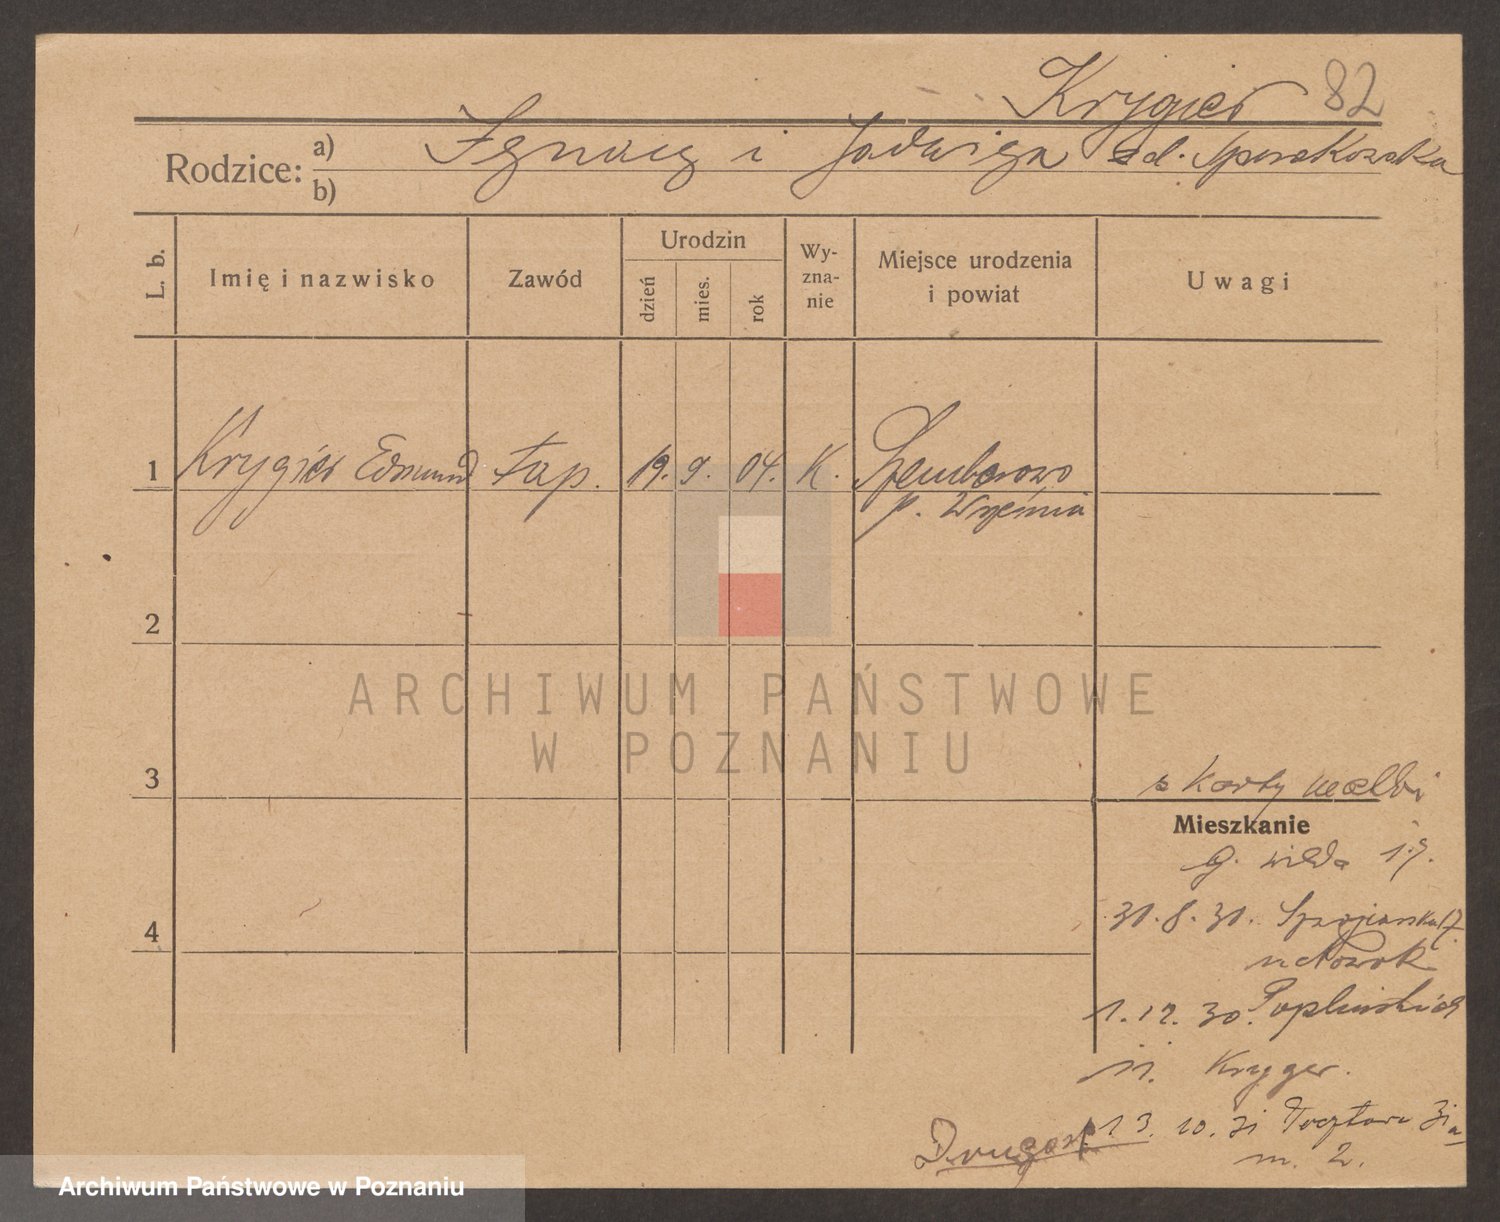 Krygier 82
Rodzice: a) Ignacy i Jadwiga zd.
b)
L. b.
Imię i nazwisko
Zawód
Urodzin
dzień
mies.
rok
Wy-
zna-
nie
Miejsce urodzenia
i powiat
Uwagi
1 Krygier Edmund tap. 19. 9. 04. K. Szemborowo
p. Września
2
3
4
z karty
Mieszkanie
g. wilda 19.
31. 8. 31.
1. 12. 30. Poplińskich
11. Krygier.
13. 10. 31 Pocztowa 31a
m. 2.
ARCHIWUM PAŃSTWOWE
W POZNANIU
Archiwum Państwowe w Poznaniu